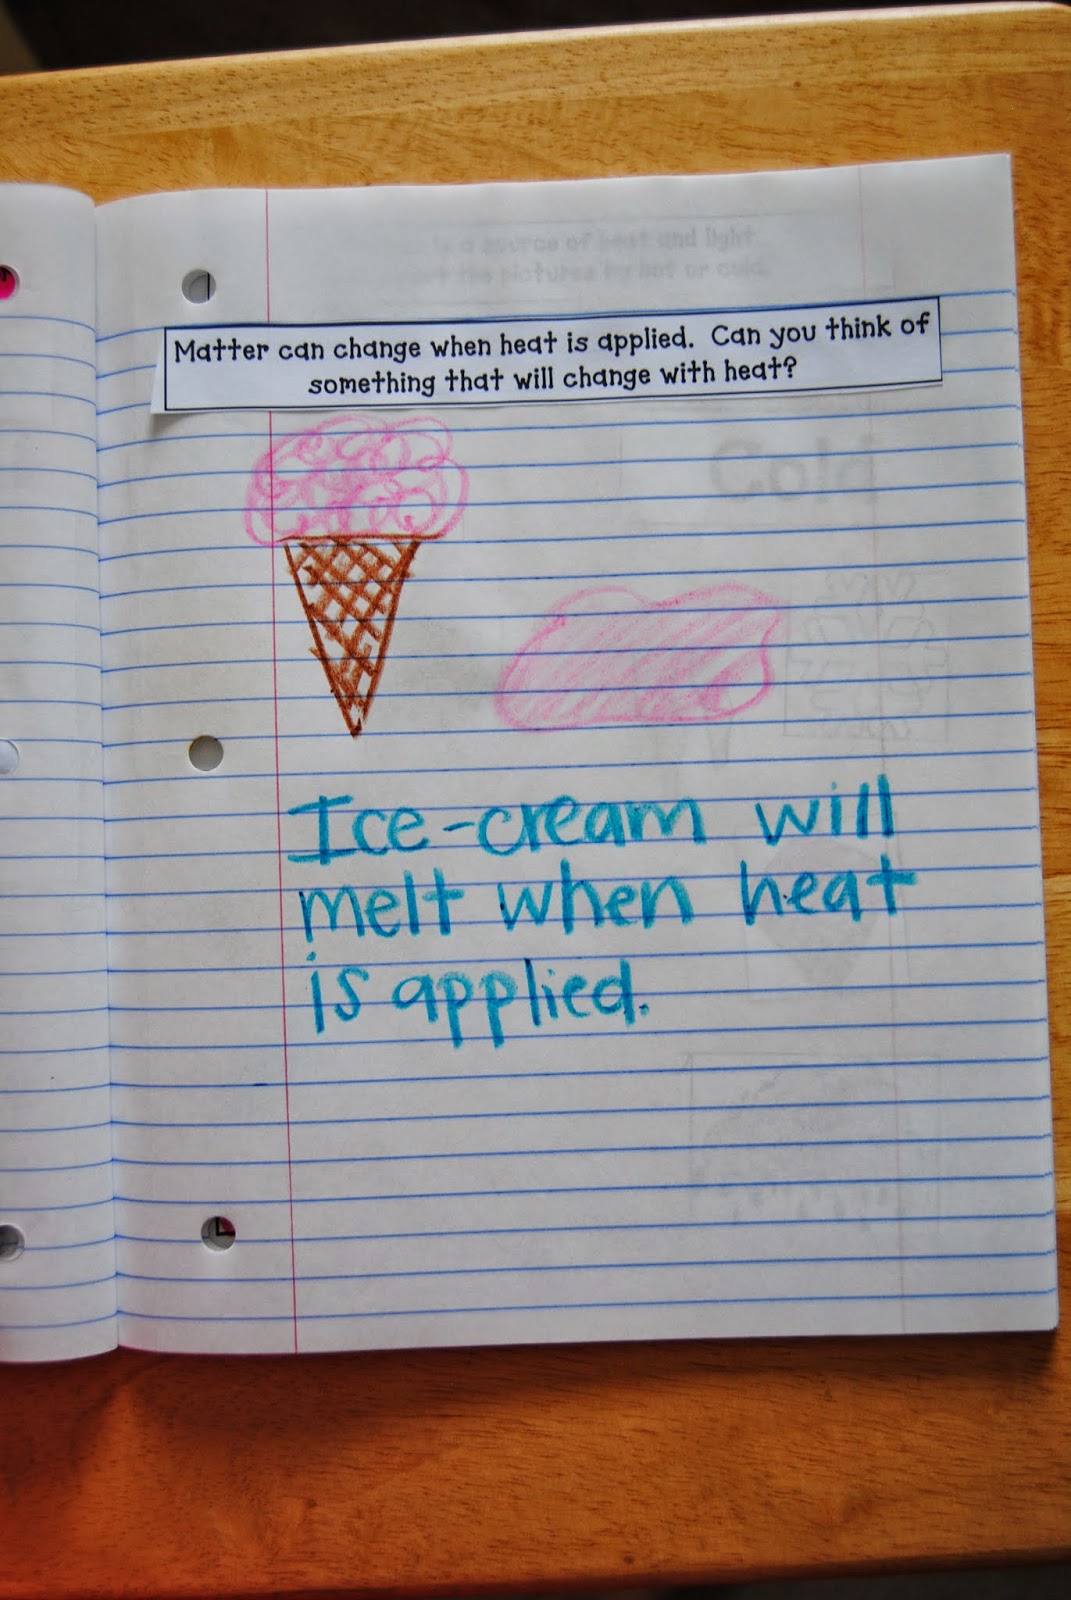 is a source of heat and light
the pictures by hot or cold.
Matter can change when heat is applied. Can you think of
something that will change with heat?
Cold
Ice-cream will
melt when heat
is applied.